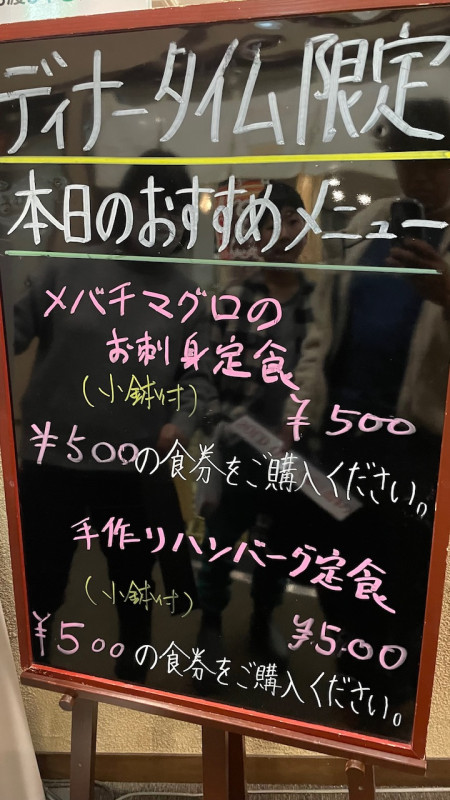 ディナータイム限定
本日のおすすめメニュー
メバチマグロの
お刺身定食
(小鉢付)
¥500
¥500の食券をご購入ください。
手作りハンバーグ定食
(小鉢付)
¥500
¥500の食券をご購入ください。